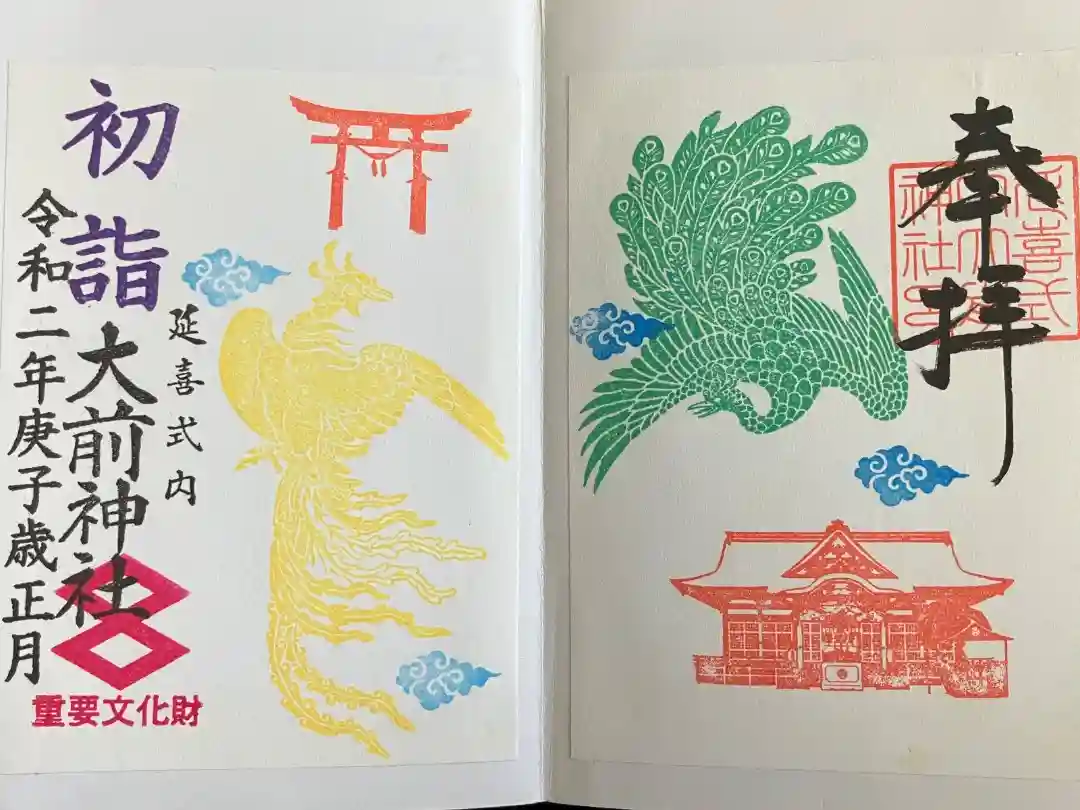 奉拝
延喜式
神社
初詣
延喜式内
大前神社
令和二年庚子歳正月
重要文化財